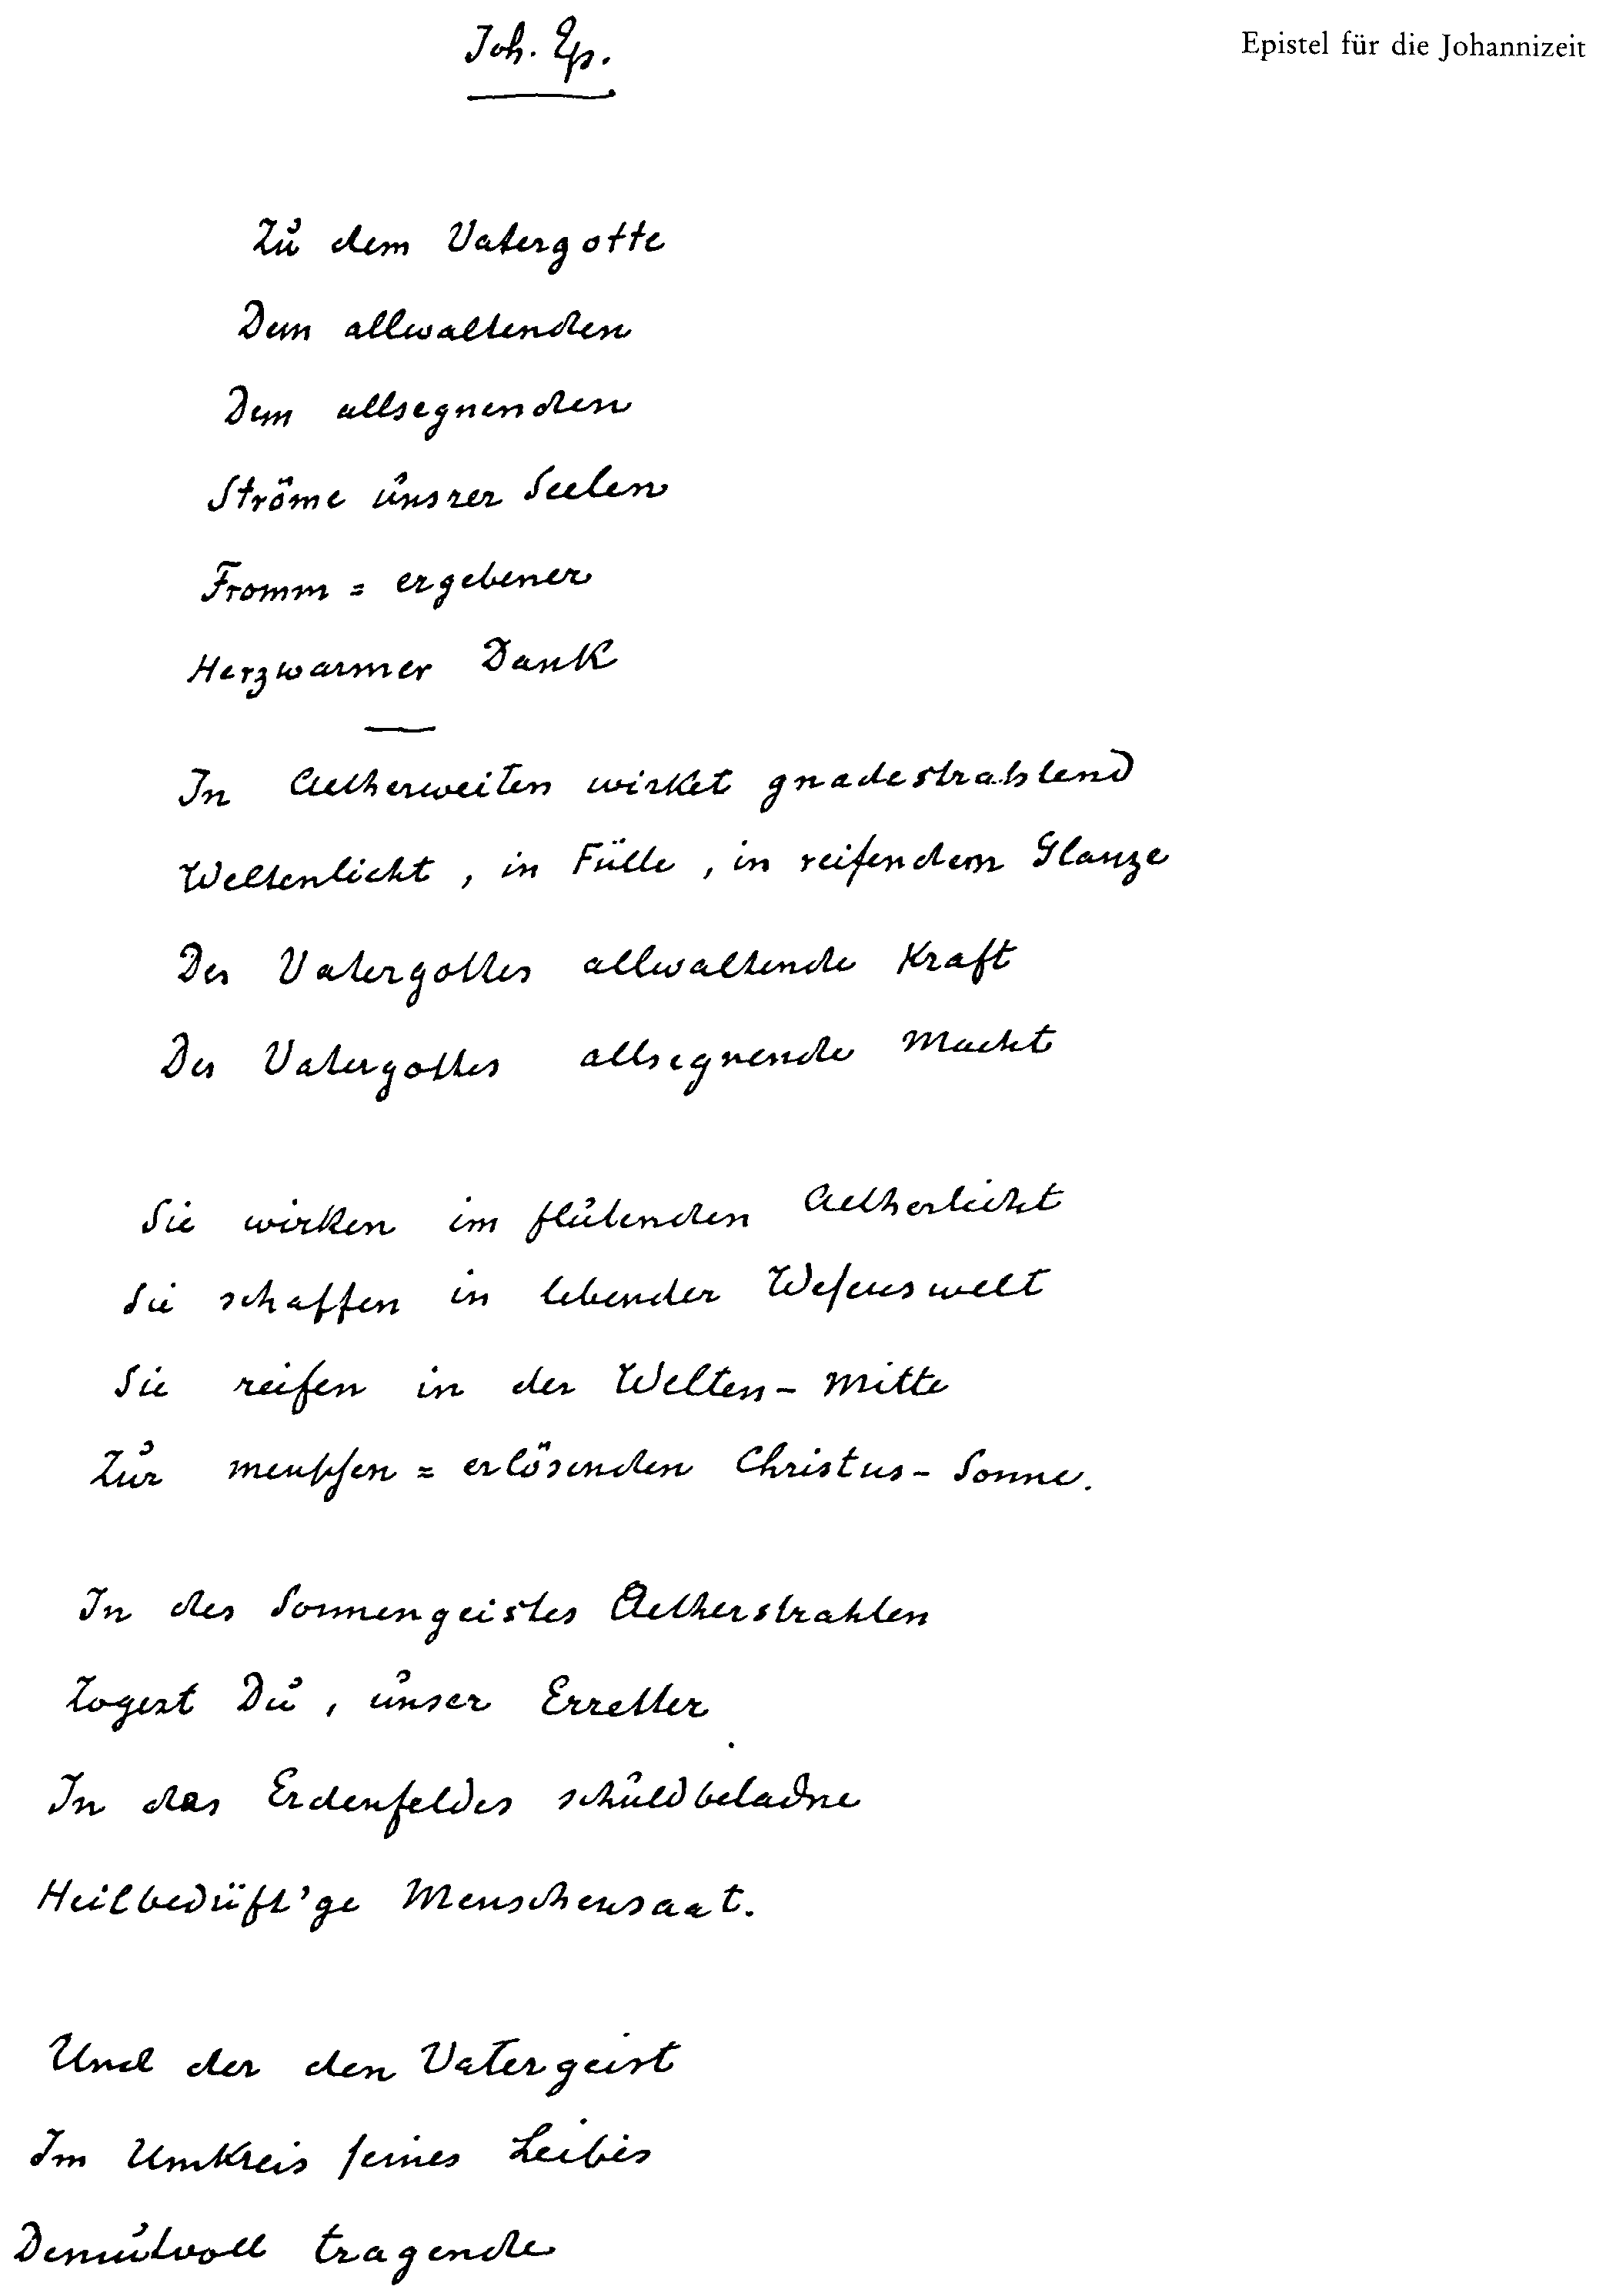 Joh. Ep.
Epistel für die Johannizeit
Zu dem Vatergotte
Dem allwaltenden
Dem allsegnenden
Ströme unsrer Seelen
Fromm = ergebener
Herzwarmer Dank
In Aetherweiten wirket gnadestrahlend
Weltenlicht, in Fülle, in reifendem Glanze
Des Vatergottes allwaltende Kraft
Des Vatergottes allsegnende Macht
Sie wirken im flutenden Aetherlicht
Sie schaffen in lebender Wesenswelt
Sie reifen in der Welten-Mitte
Zur menschen = erlösenden Christus-Sonne.
In des Sonnengeistes Aetherstrahlen
Zogest Du, unser Erretter
In das Erdenfeldes schuldbeladne
Heilbedüft'ge Menschensaat.
Und der den Vatergeist
Im Umkreis seines Leibes
Demutvoll tragende